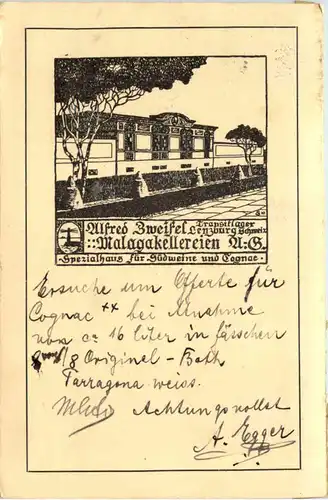 Alfred Zweifel Transitlager
Lenzburg Schweiz
::Malagakellereien A.-G.
·Spezialhaus für Südweine und Cognac·
Ersuche um Offerte für
Cognac ** bei Abnahme
von ca 16 Liter in Fässchen
1/8 Original-Both
Tarragona weiss.
Achtungsvollst
A. Egger